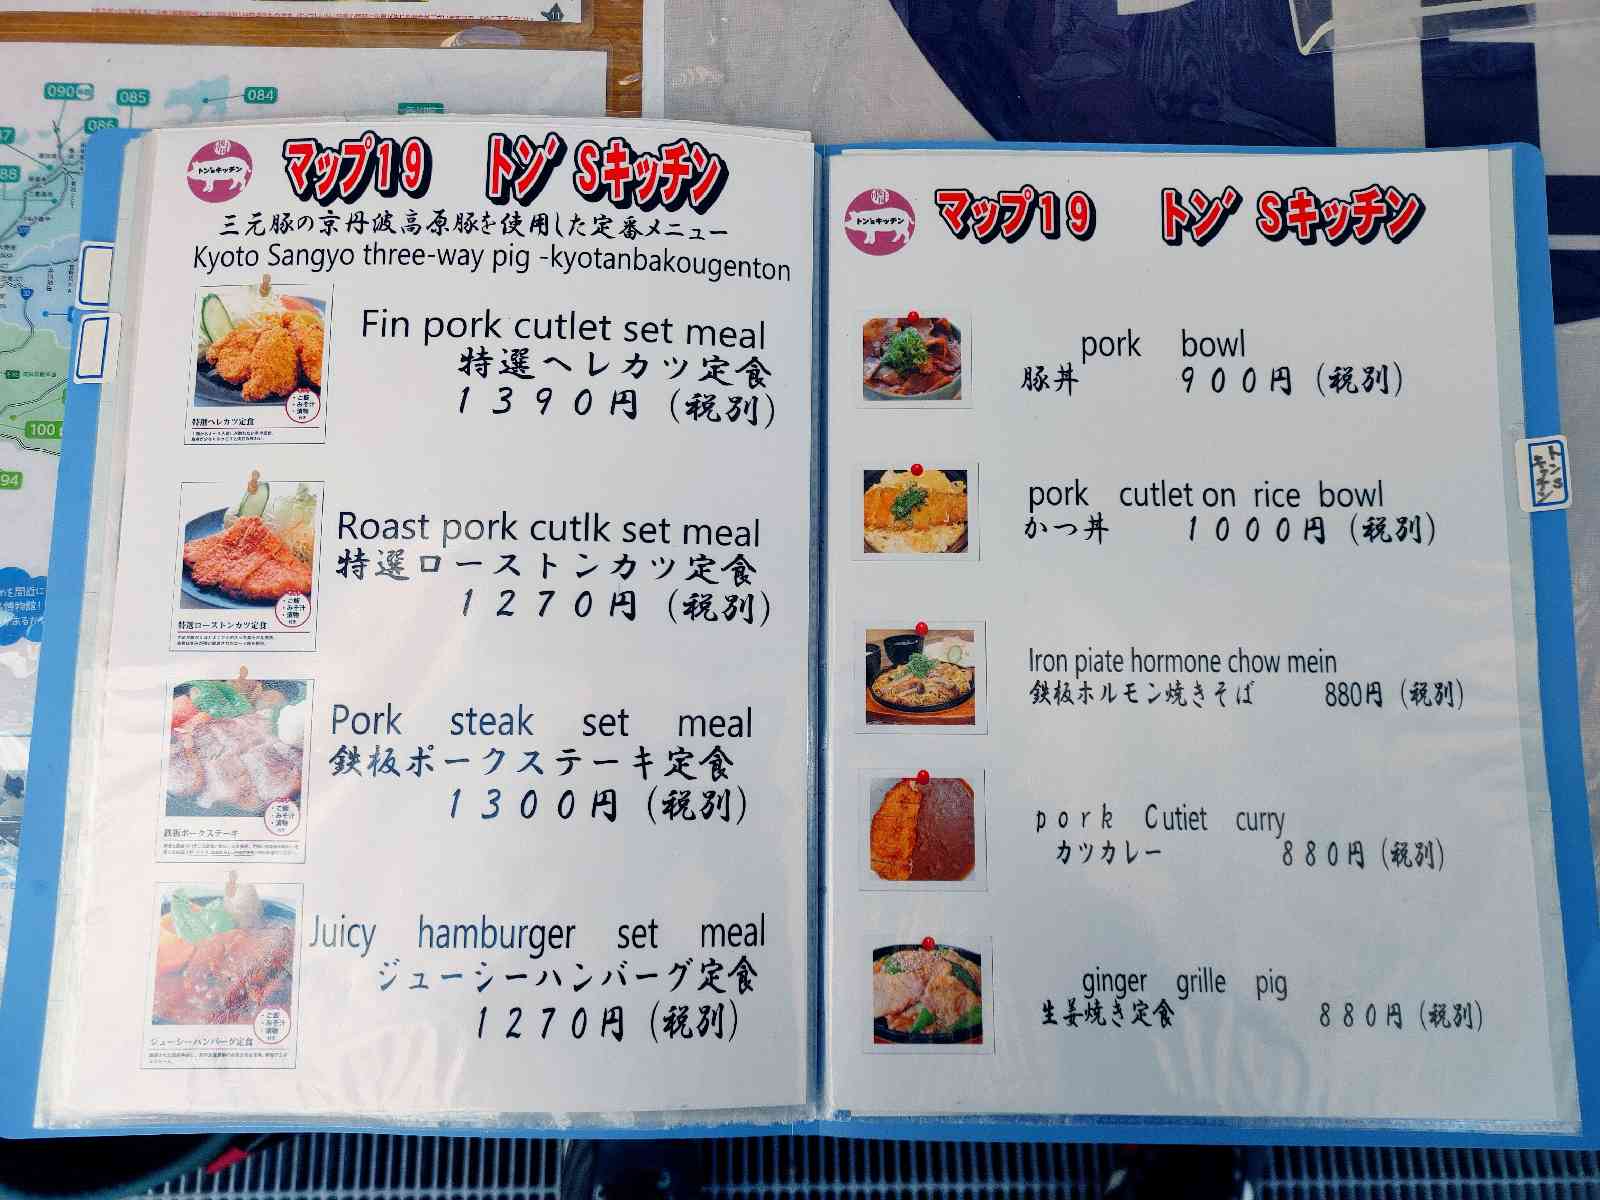 090
085
084
086
88
100
94
トン's キッチン
マップ19 トン'Sキッチン
三元豚の京丹波高原豚を使用した定番メニュー
Kyoto Sangyo three-way pig -kyotanbakougenton
Fin pork cutlet set meal
特選ヘレカツ定食
1390円(税別)
・ご飯
・みそ汁
・漬物
付き
特選ヘレカツ定食
Roast pork cutlk set meal
特選ローストンカツ定食
1270円(税別)
・ご飯
・みそ汁
・漬物
付き
特選ローストンカツ定食
Pork steak set meal
鉄板ポークステーキ定食
1300円(税別)
・ご飯
・みそ汁
・漬物
付き
鉄板ポークステーキ
Juicy hamburger set meal
ジューシーハンバーグ定食
1270円(税別)
・ご飯
・みそ汁
・漬物
付き
ジューシーハンバーグ定食
トン's キッチン
マップ19 トン'Sキッチン
pork bowl
豚丼 900円(税別)
pork cutlet on rice bowl
かつ丼 1000円(税別)
Iron piate hormone chow mein
鉄板ホルモン焼きそば 880円(税別)
pork Cutiet curry
カツカレー 880円(税別)
ginger grille pig
生姜焼き定食 880円(税別)
トンS
キッチン